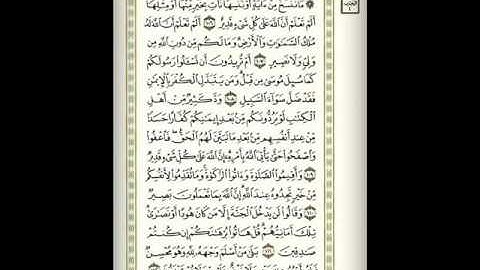 ۞ مَا نَنسَخْ مِنْ ءَايَةٍ أَوْ نُنسِهَا نَأْتِ بِخَيْرٍ مِّنْهَآ أَوْ مِثْلِهَآ
أَلَمْ تَعْلَمْ أَنَّ ٱللَّهَ عَلَىٰ كُلِّ شَىْءٍ قَدِيرٌ ١٠٦ أَلَمْ تَعْلَمْ أَنَّ ٱللَّهَ لَهُۥ
مُلْكُ ٱلسَّمَٰوَٰتِ وَٱلْأَرْضِ وَمَا لَكُم مِّن دُونِ ٱللَّهِ مِن
وَلِىٍّ وَلَا نَصِيرٍ ١٠٧ أَمْ تُرِيدُونَ أَن تَسْـَٔلُوا۟ رَسُولَكُمْ
كَمَا سُئِلَ مُوسَىٰ مِن قَبْلُ وَمَن يَتَبَدَّلِ ٱلْكُفْرَ بِٱلْإِيمَٰنِ
فَقَدْ ضَلَّ سَوَآءَ ٱلسَّبِيلِ ١٠٨ وَدَّ كَثِيرٌ مِّنْ أَهْلِ
ٱلْكِتَٰبِ لَوْ يَرُدُّونَكُم مِّنۢ بَعْدِ إِيمَٰنِكُمْ كُفَّارًا حَسَدًا
مِّنْ عِندِ أَنفُسِهِم مِّنۢ بَعْدِ مَا تَبَيَّنَ لَهُمُ ٱلْحَقُّ فَٱعْفُوا۟
وَٱصْفَحُوا۟ حَتَّىٰ يَأْتِىَ ٱللَّهُ بِأَمْرِهِۦٓ إِنَّ ٱللَّهَ عَلَىٰ كُلِّ شَىْءٍ قَدِيرٌ
١٠٩ وَأَقِيمُوا۟ ٱلصَّلَوٰةَ وَءَاتُوا۟ ٱلزَّكَوٰةَ وَمَا تُقَدِّمُوا۟ لِأَنفُسِكُم
مِّنْ خَيْرٍ تَجِدُوهُ عِندَ ٱللَّهِ إِنَّ ٱللَّهَ بِمَا تَعْمَلُونَ بَصِيرٌ
١١٠ وَقَالُوا۟ لَن يَدْخُلَ ٱلْجَنَّةَ إِلَّا مَن كَانَ هُودًا أَوْ نَصَٰرَىٰ
تِلْكَ أَمَانِيُّهُمْ قُلْ هَاتُوا۟ بُرْهَٰنَكُمْ إِن كُنتُمْ
صَٰدِقِينَ ١١١ بَلَىٰ مَنْ أَسْلَمَ وَجْهَهُۥ لِلَّهِ وَهُوَ مُحْسِنٌ